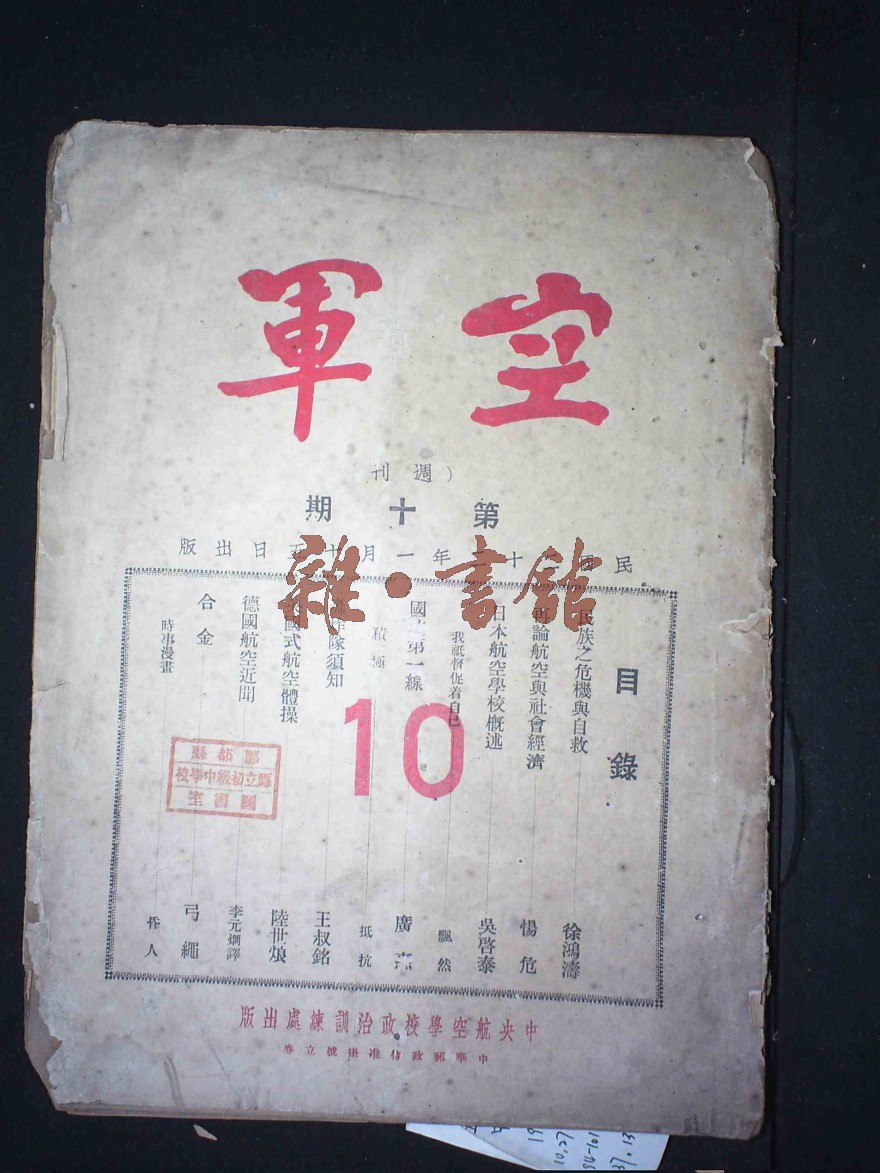 空軍
(週刊
第十期
民國十年一月十日出版
雜·書館
目錄
民族之危機與自救 徐鴻濤
再論航空與社會經濟 惕危
日本航空學校概述 吳啓泰
我祇督促着自己 飄然
國第一線 廣
積極 抵抗
炸隊須知 王叔銘
國式航空體操 陸世烺
德國航空近聞 李元炯譯
合金 弓繩
時事漫畫 昏人
10
酆都縣
縣立初級中學校
圖書室
中央航空學校政治訓練處出版
中華郵政特准掛號立券